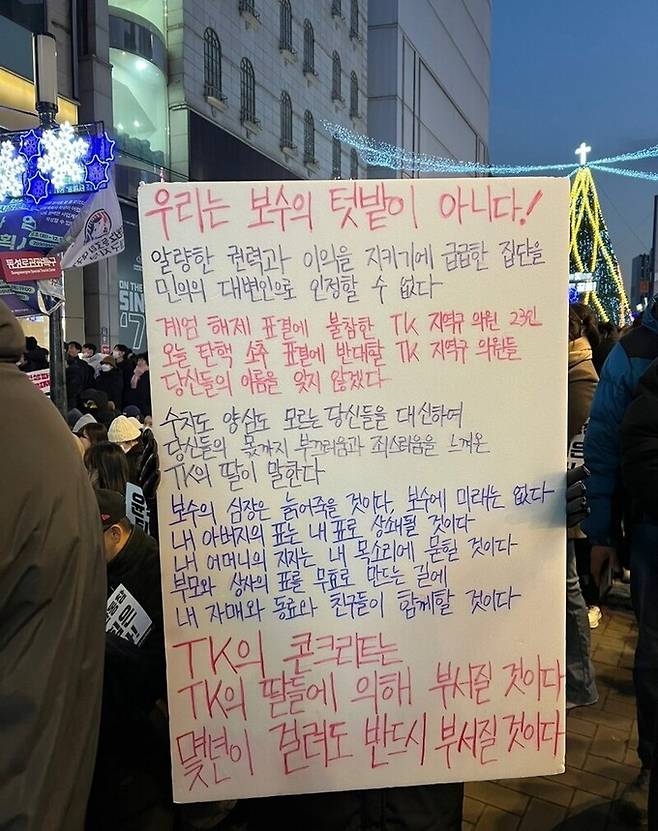 우리는 보수의 텃밭이 아니다!
알량한 권력과 이익을 지키기에 급급한 집단을
민의의 대변인으로 인정할 수 없다
계엄 해제 표결에 불참한 TK 지역구 의원 23인
오늘 탄핵 소추 표결에 반대할 TK 지역구 의원들
당신들의 이름을 잊지 않겠다
수치도 양심도 모르는 당신들을 대신하여
당신들의 몫까지 부끄러움과 죄스러움을 느껴온
TK의 딸이 말한다
보수의 심장은 늙어죽을 것이다, 보수에 미래는 없다
내 아버지의 표는 내 표로 상쇄될 것이다
내 어머니의 지지는 내 목소리에 묻힐 것이다
부모와 상사의 표를 무효로 만드는 길에
내 자매와 동료와 친구들이 함께할 것이다
TK의 콘크리트는
TK의 딸들에 의해 부서질 것이다
몇년이 걸려도 반드시 부서질 것이다
동성로관광특구
ON THE
SINCE
'7